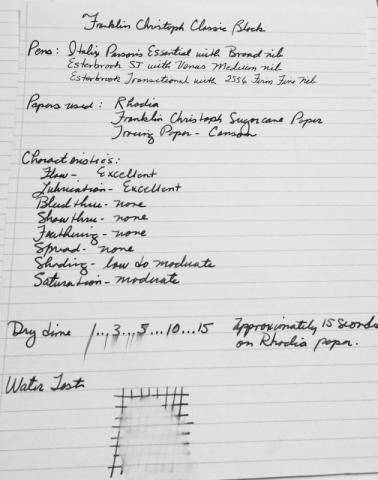 Franklin Christoph Classic Black
Pens: Italix Parson's Essential with Broad nib
Esterbrook SJ with Venus Medium nib
Esterbrook Transitional with 2556 Firm Fine nib
Papers used: Rhodia
Franklin Christoph Sugarcane Paper
Tracing Paper - Canson
Characteristics:
Flow - Excellent
Lubrication - Excellent
Bleed thru - none
Show thru - none
Feathering - none
Spread - none
Shading - low to moderate
Saturation - moderate
Dry time 1...3...5...10...15 Approximately 15 seconds
on Rhodia paper.
Water Test